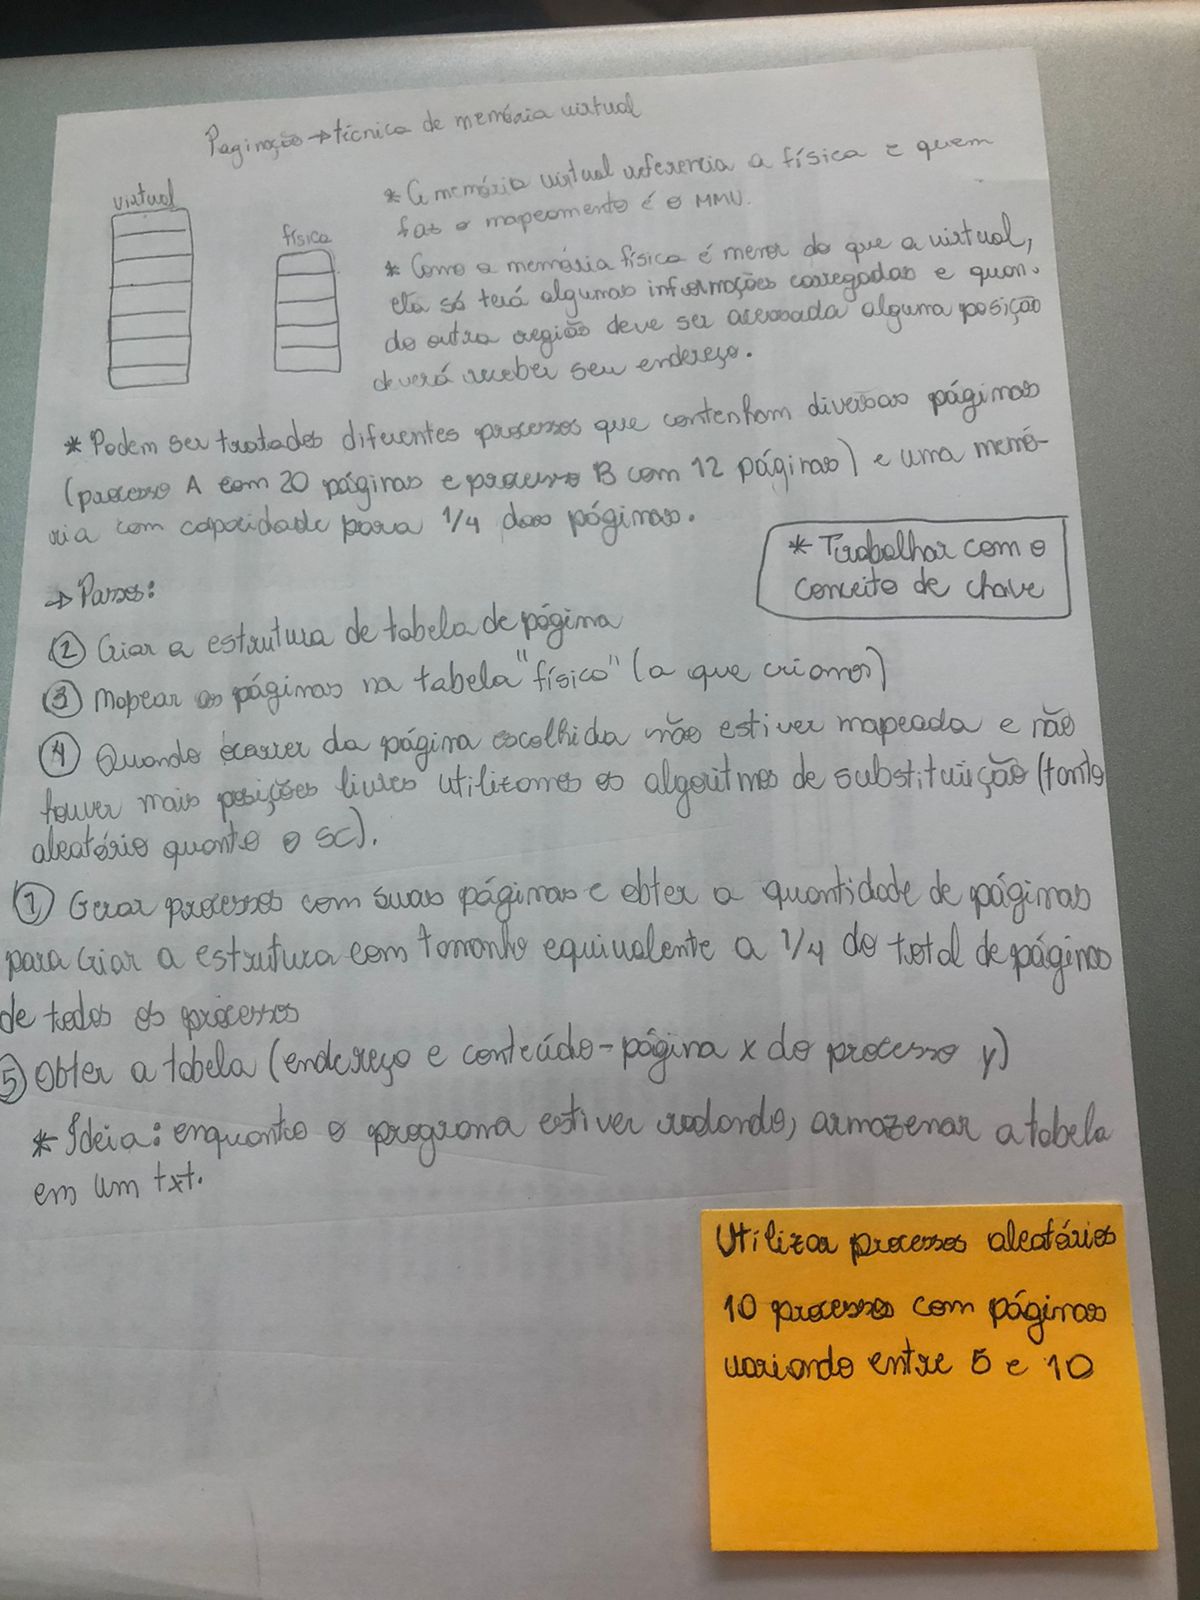 Paginação → técnica de memória virtual
virtual
física
* A memória virtual referencia a física e quem
faz o mapeamento é o MMU.
* Como a memória física é menor do que a virtual,
ela só terá algumas informações carregadas e quan-
do outra região deve ser acessada alguma posição
deverá receber seu endereço.
* Podem ser tratados diferentes processos que contenham diversas páginas
(processo A com 20 páginas e processo B com 12 páginas) e uma memó-
ria com capacidade para 1/4 das páginas.
* Trabalhar com o
conceito de chave
→ Passos:
② Criar a estrutura de tabela de página
③ Mapear as páginas na tabela "físico" (a que criamos)
④ Quando ocorrer da página escolhida não estiver mapeada e não
houver mais posições livres utilizamos os algoritmos de substituição (tanto
aleatório quanto o SC).
① Gerar processos com suas páginas e obter a quantidade de páginas
para criar a estrutura com tamanho equivalente a 1/4 do total de páginas
de todos os processos
⑤ Obter a tabela (endereço e conteúdo - página x do processo y)
* Ideia: enquanto o programa estiver rodando, armazenar a tabela
em um txt.
Utilizar processos aleatórios
10 processos com páginas
variando entre 5 e 10